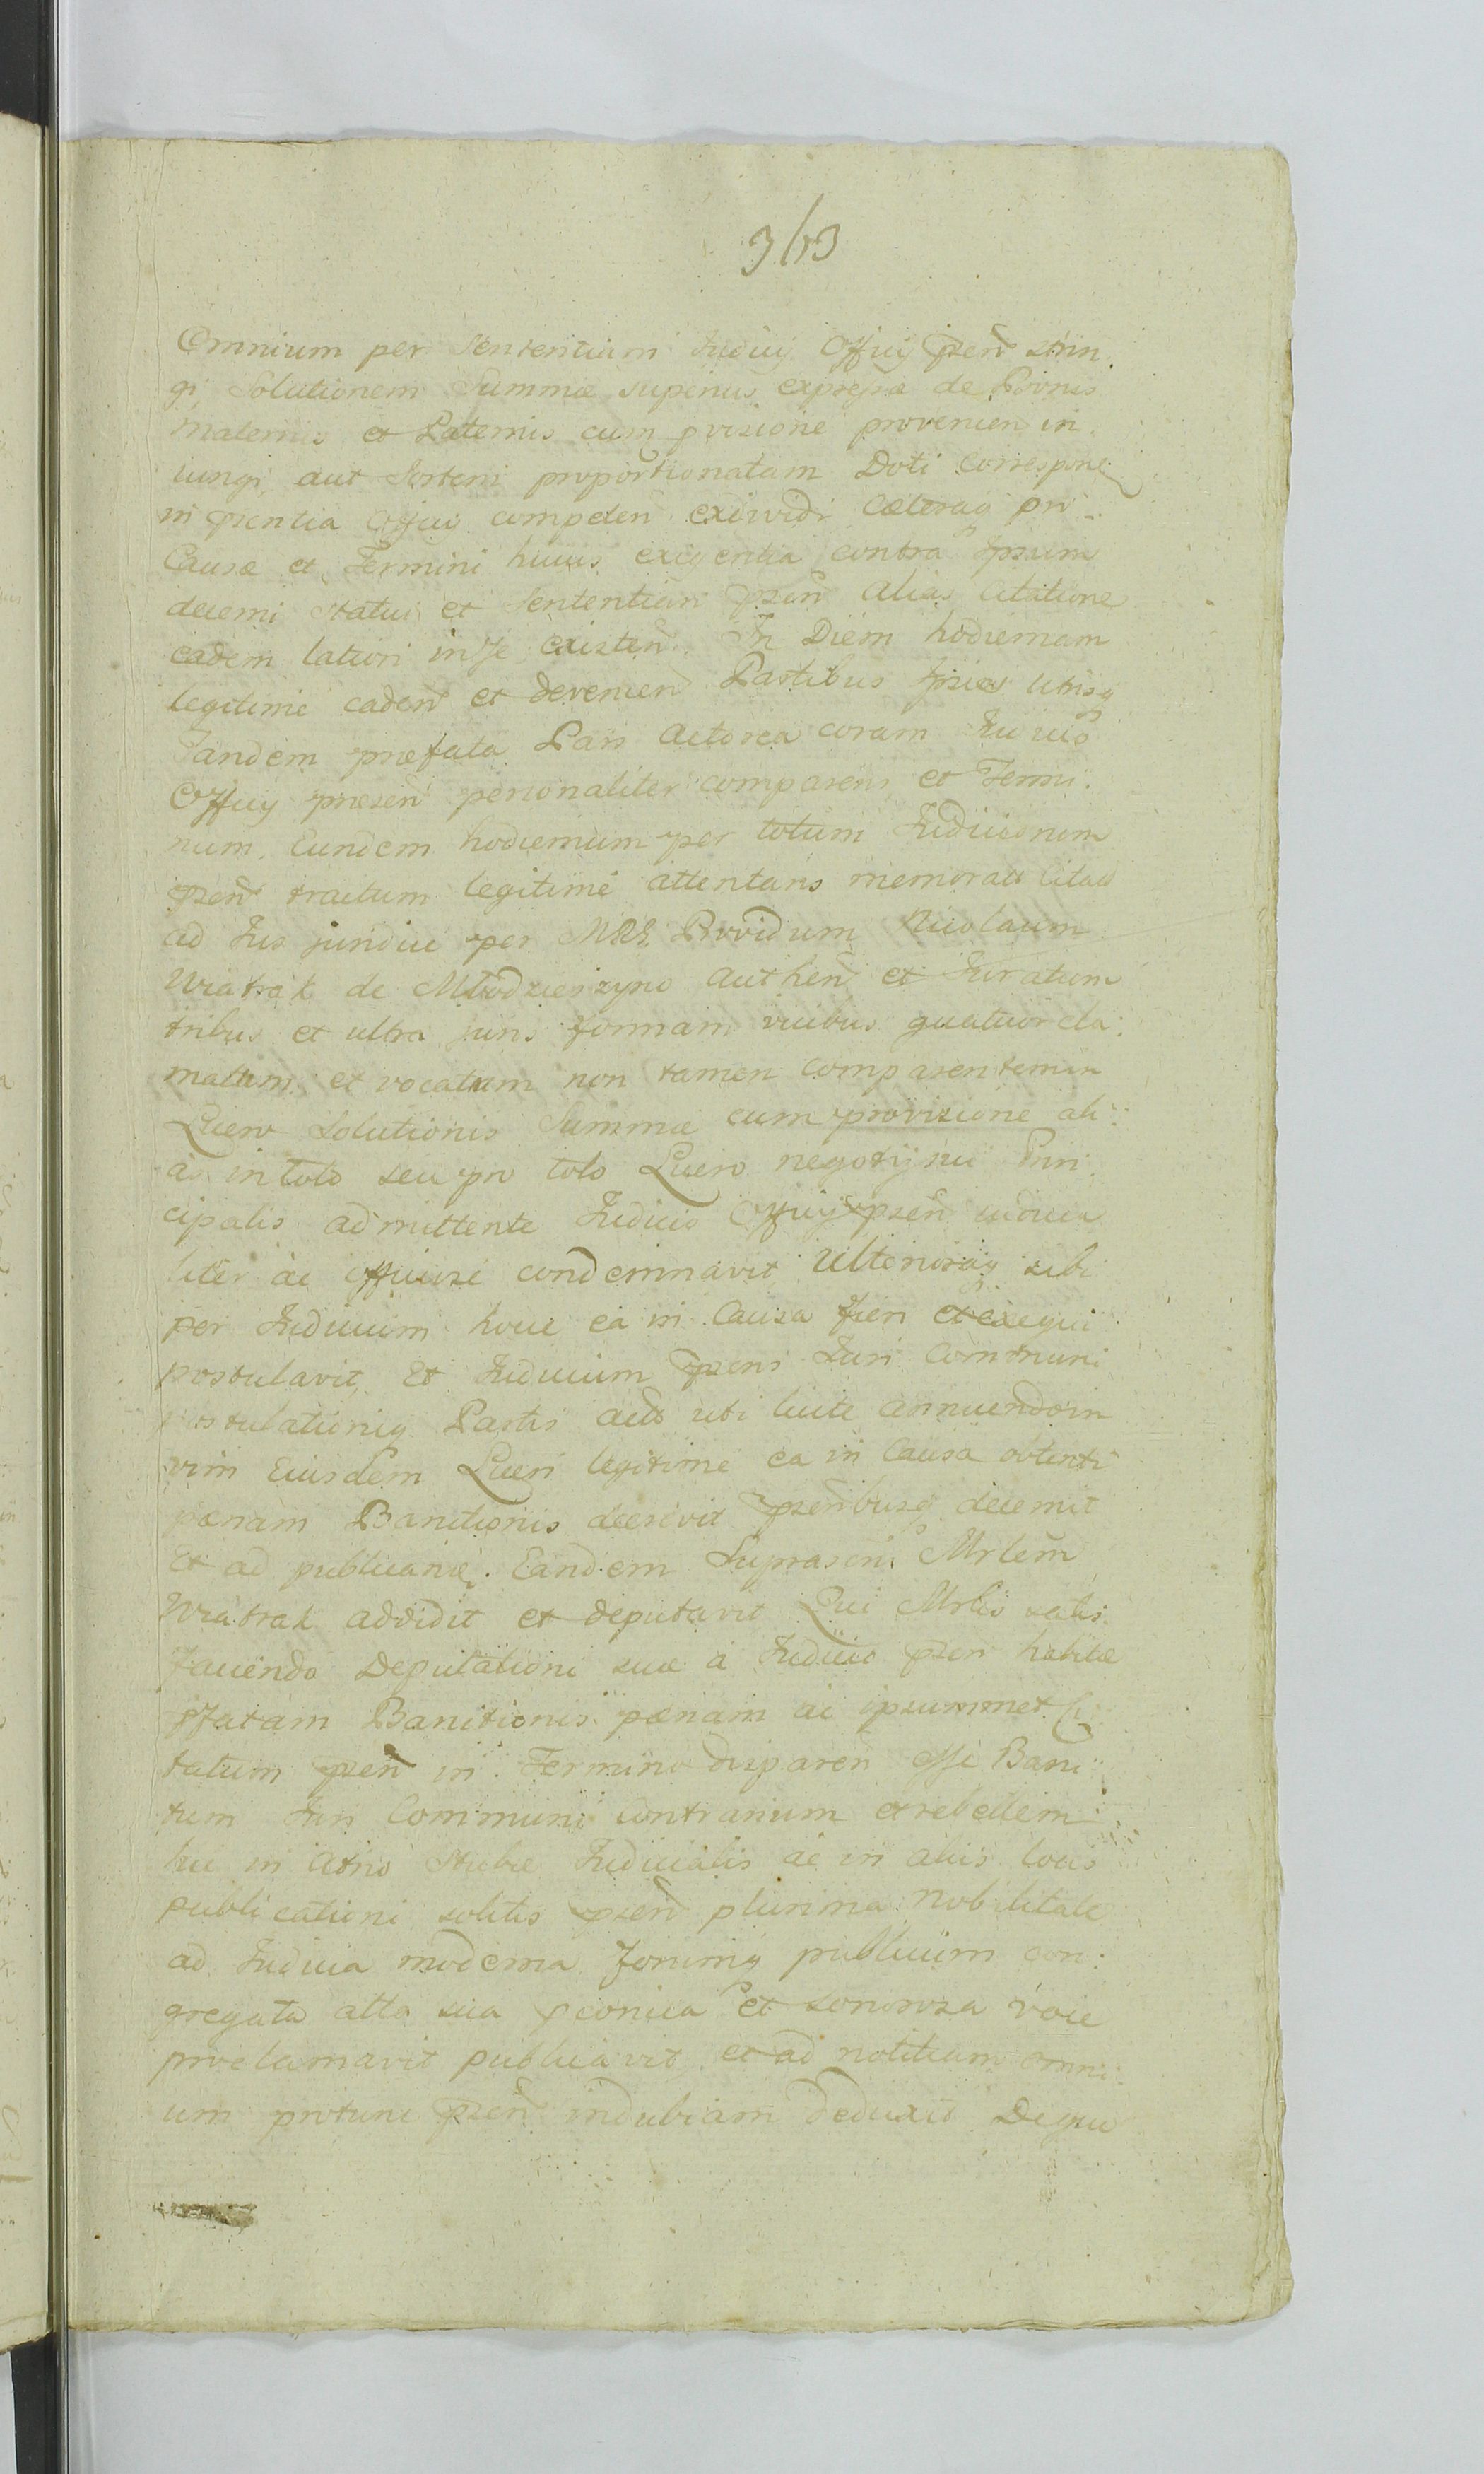 363
Omnium per Sententiam Judicij Officij psen strin
gi, Solutionem Summæ superius expressæ de Bonis
Maternis et Paternis cum pvisione provenien in
iungi, aut Sortem proportionatam Doti correspon
in psentia Officij competen exdividi Cæteraq pro
Causæ et Termini huius exigentia contra Ipsum
decerni statui et Sententiari psen Alias Citatione
eadem latiori in se existen. In Diem hodiernam
legitime caden et devenien Partibus Ipsis utrisq
Tandem præfata Pars Actorea coram Iudicio
Officij præsen personaliter comparens et Termi
num Eundem hodiernum per totum Judicionem
psen tractum legitime attentans memorati Citati
ad Jus juridice per MRG Providum Nicolaum
Wiatrak de Młodzieszyno Authen et Juratum
tribus et ultra juris formam vicibus quatuor cla:
matum et vocatum non tamen comparentem in
Lucro Solutionis Summæ cum provisione ali:
as in toto seu pro toto Lucro negotij sui Prin
cipalis admittente Judicio Officij psen
liter ac Officiose condemnavit Ulterioraq sibi
per Judicium hocce ea in Causa fieri et exequi
postulavit, Et Judicium psens Juri Communi
postulationiq Partis acto uti licite annuendo in
vim Eiusdem Lucri legitime ea in Causa obtenti
pænam Banitionis decrevit psenibusq decernit
Et ad publicand. Eandem Suprascri Mrlem
Wiatrak addidit et deputavit Qui Mrlis satis
faciendo Deputationi suæ a Judicio psen habitæ
pfatam Banitionis pænam ac ipsummet Ci
tatum psen in Termino disparen esse Bani
tum Juri Communi Contrarium et rebellem
hic in Atrio Stubæ Judicialis ac in aliis locis
publicationi solitis psen plurima Nobilitate
ad Judicia moderna forumq publicum con:
gregata alta sua pconica et sonorosa voce
proclamavit publicavit et ad notitiam omni
um protunc psen indubiam deduxit Dequa